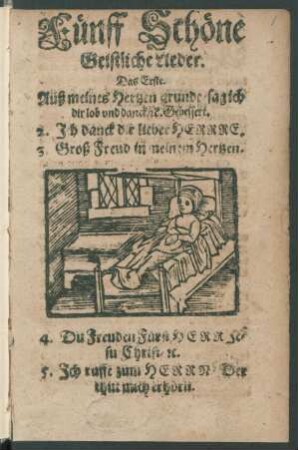 Fünff Schöne
Geistliche Lieder.
Das Erste.
Auß meines Hertzen grunde / sag ich
dir lob vnd danck / ꝛc. Gebessert.
2. Ich danck dir lieber HERRE.
3. Groß Freud in meinem Hertzen.
4. Du Freuden Fürst HERR Je⸗
su Christ / ꝛc.
5. Ich ruffe zum HERRN / Der
thut mich erhörn.